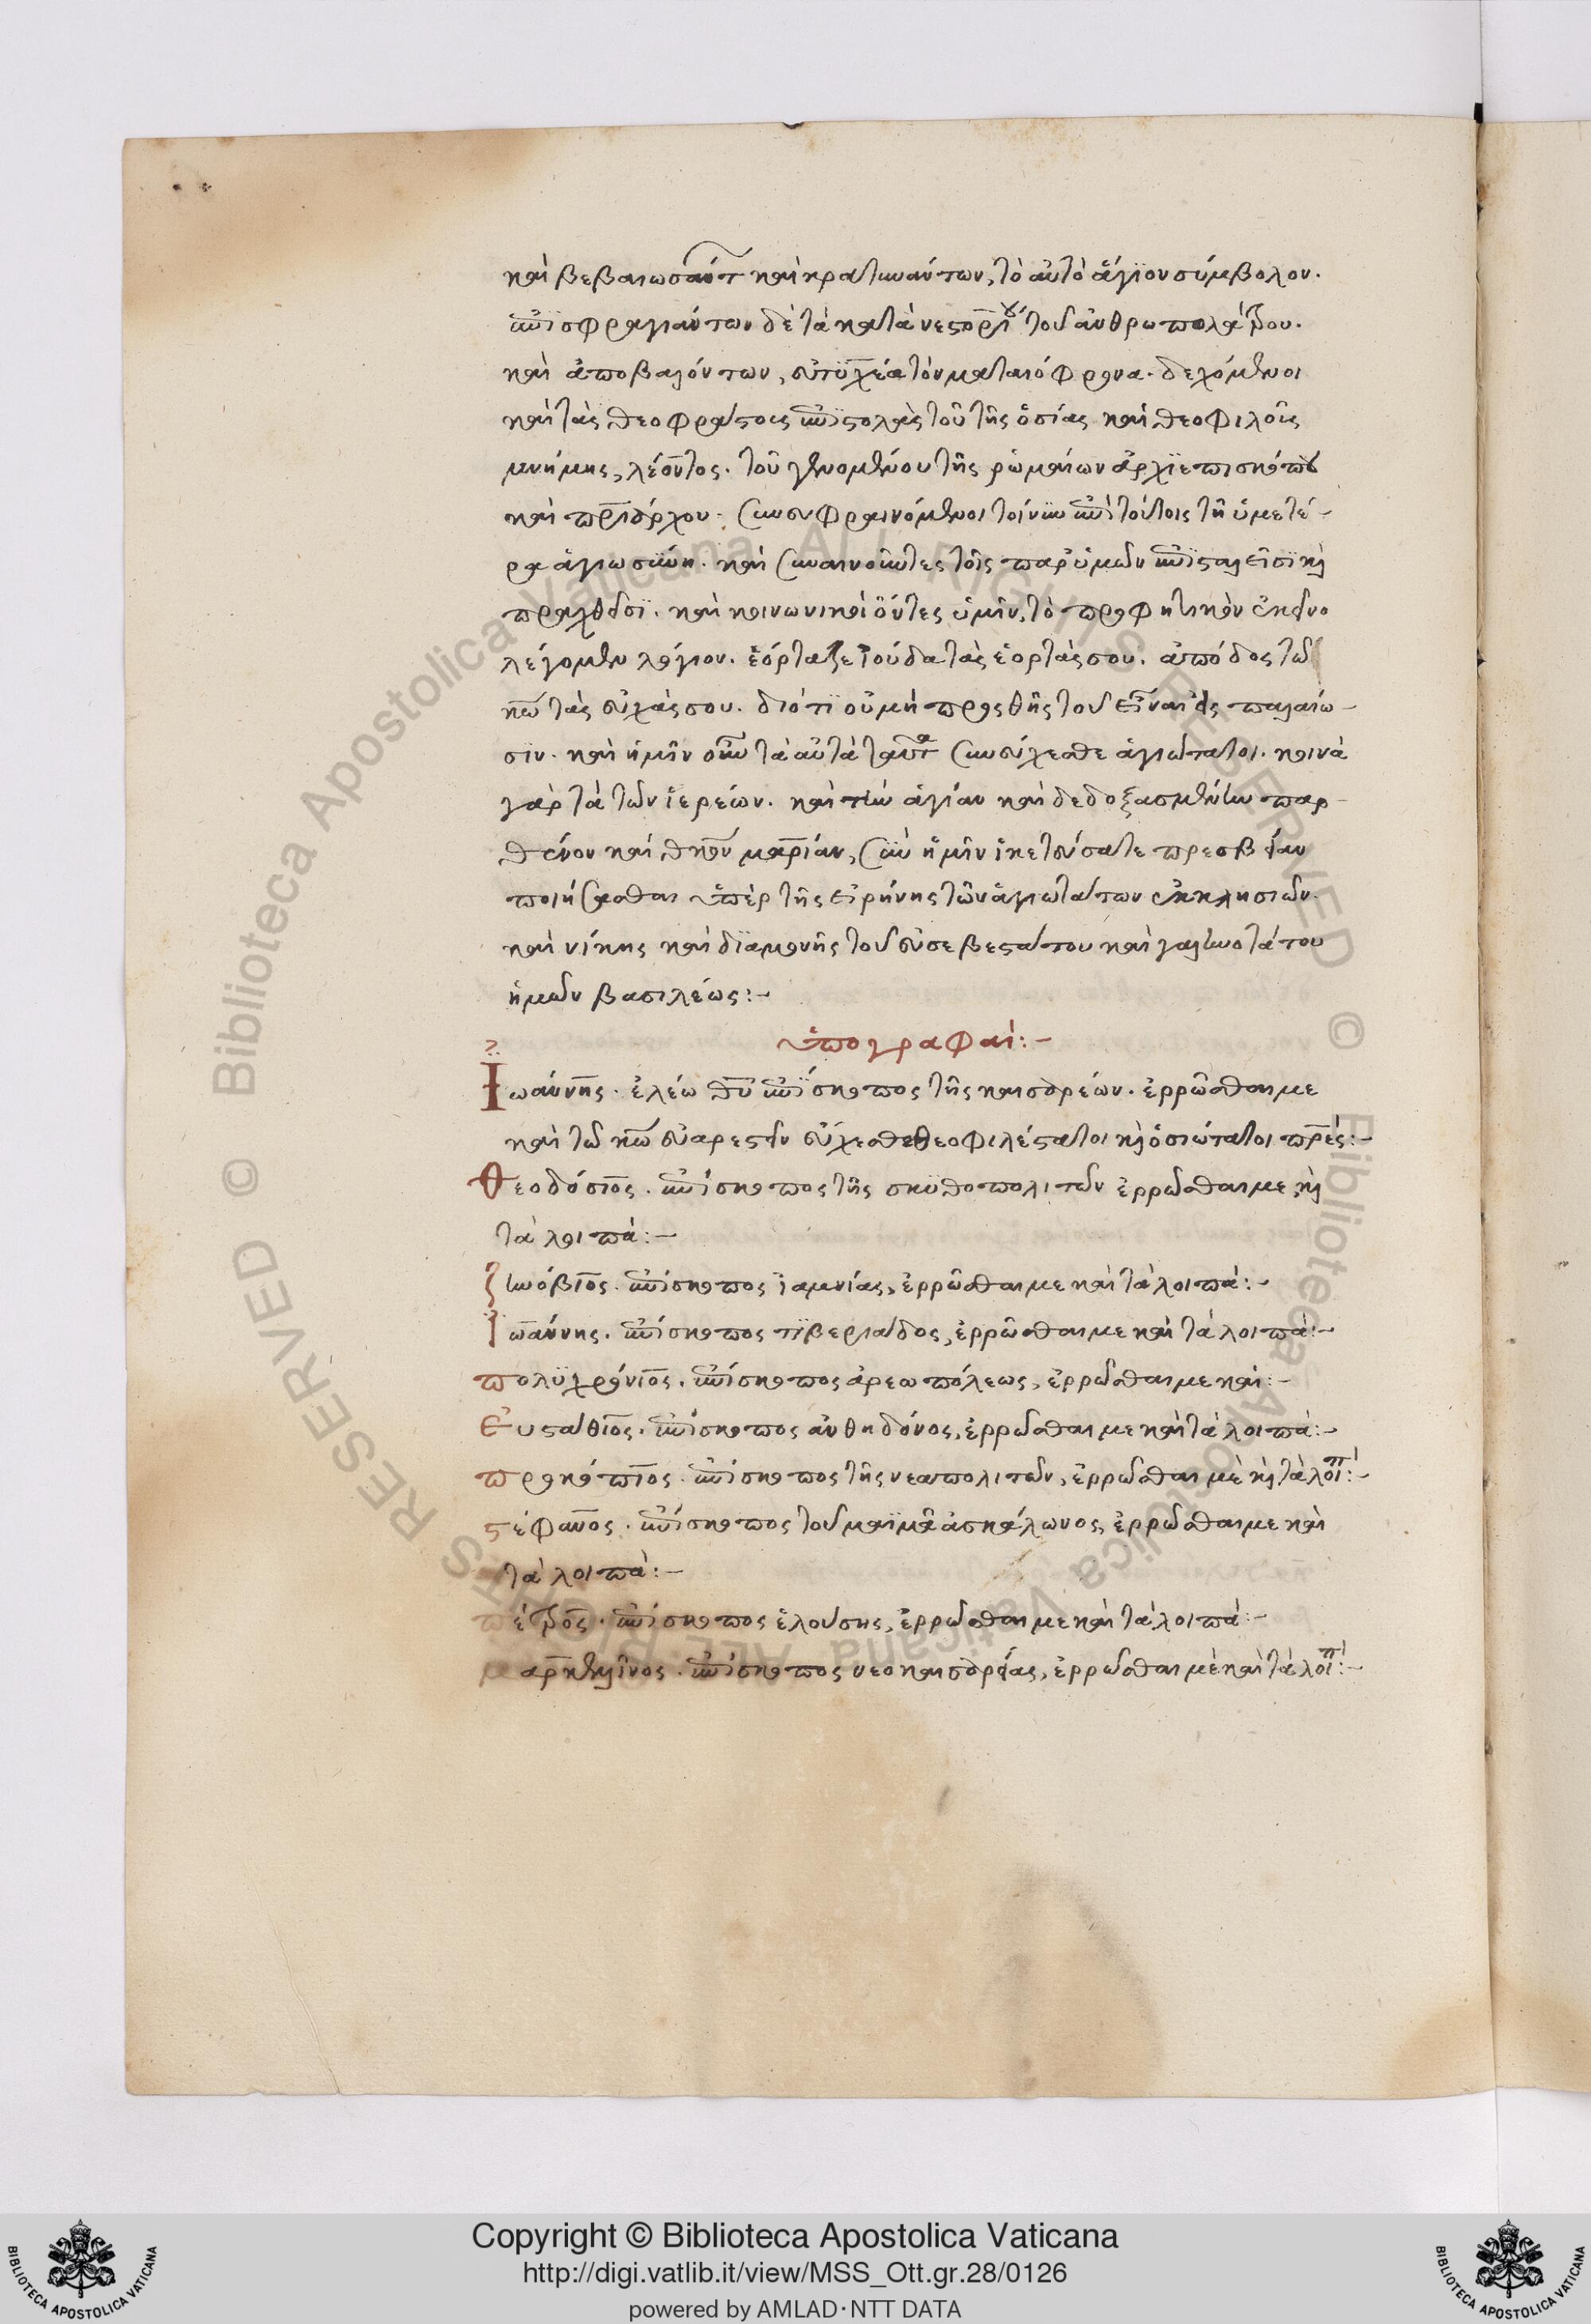 καὶ βεβαιωσάντ καὶ κρατυνάντων, τὸ αὐτὸ ἅγϊον σύμβολον.
ἐπϊσφραγισάντων δὲ τὰ κατὰ νεστορίου τοῦ ἀνθρωπολάτρου.
καὶ ἀποβαλόντων, εὐτϋχέα τὸν ματαιόφρονα. δεχόμενοι
καὶ τὰς θεοφράστοις ἐπϊστολὰς τοῦ τῆς ὁσίας καὶ θεοφιλοῦς
μνήμης, λέοντος. τοῦ γενομένου τῆς ῥωμαίων ἀρχϊεπισκόπου
καὶ πριάρχου. συνευφραινόμενοι τοίνυν ἐπὶ τούτοις τῆ ὑμετέ-
ρα ἁγιωσύνη. καὶ συναινοῦντες τοῖς παρ' ὑμῶν ἐπϊσταλεῖσϊ καὶ
πραχθεῖσϊ. καὶ κοινωνικοὶ ὄντες ὑμῖν, τὸ προφητικὸν ἐκεῖνο
λέγομεν λόγιον. ἑόρταζε ἰούδα τὰς ἑορτάς σου. ἀπόδος τῶ
κω τὰς εὐχάς σου. διότϊ οὐ μὴ προσθῆς τοῦ εἶναι εἰς παλαίω-
σϊν. καὶ ἡμῖν οὖν τὰ αὐτὰ ταῦτα συνεύχεσθε ἁγιώτατοι. κοινὰ
γὰρ τὰ τῶν ἱερέων. καὶ τὴν ἁγίαν καὶ δεδοξασμένην παρ-
θένον καὶ θκον μαρίαν, σὺν ἡμῖν ἱκετεύσατε πρεσβείαν
ποιήσασθαι ὑπὲρ τῆς εἰρήνης τῶν ἁγιωτάτων ἐκκλησιῶν.
καὶ νίκης καὶ δϊαμονῆς τοῦ εὐσεβεστάτου καὶ γαληνοτάτου
ἡμῶν βασιλέως:-
ὑπογραφαί:-
Ἰωάννης. ἐλέω θυ ἐπίσκοπος τῆς καισαρέων. ἐρρῶσθαι με
καὶ τῶ κω εὐαρεστεῖν εὔχεσθε θεοφιλέστατοι καὶ ὁσιώτατοι πρες:-
Θεοδόσιος. ἐπίσκοπος τῆς σκϋθοπολιτῶν ἐρρῶσθαι με καὶ
τὰ λοιπά:-
ζηνόβιος. ἐπίσκοπος ἰαμνίας, ἐρρῶσθαι με καὶ τὰ λοιπά:-
Ἰωάννης. ἐπίσκοπος τϊβεριάδος, ἐρρῶσθαι με καὶ τὰ λοιπά:-
πολϋχρόνιος. ἐπίσκοπος ἀρεωπόλεως, ἐρρῶσθαι με καὶ:-
Εὐστάθιος. ἐπίσκοπος ἀνθηδόνος, ἐρρῶσθαι με καὶ τὰ λοιπά:-
προκόπιος. ἐπίσκοπος τῆς νεαπολιτῶν, ἐρρῶσθαι μὲ καὶ τὰ λοιπ:-
στέφανος. ἐπίσκοπος τοῦ μαϊμᾶ ἀσκάλωνος, ἐρρῶσθαι με καὶ
τὰ λοιπά:-
πέτρος. ἐπίσκοπος ἐλούσης, ἐρρῶσθαι με καὶ τὰ λοιπά:-
μαρκελλῖνος. ἐπίσκοπος νεοκαισαρείας, ἐρρῶσθαι μὲ καὶ τὰ λοιπ:-
Copyright © Biblioteca Apostolica Vaticana
http://digi.vatlib.it/view/MSS_Ott.gr.28/0126
powered by AMLAD·NTT DATA